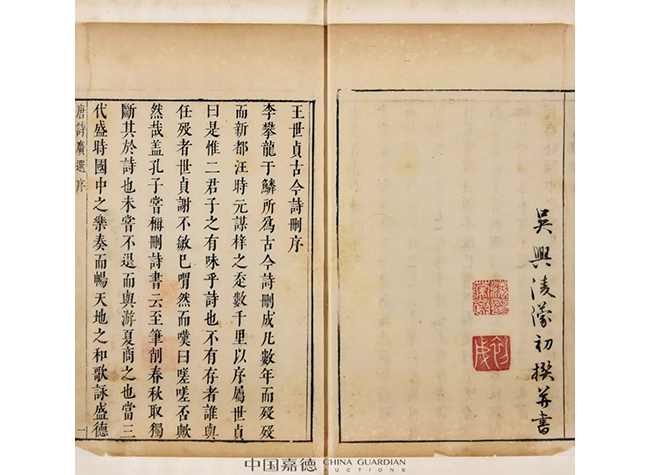 吳興淩濛初撰并書
王世貞古今詩刪序
李攀龍于鱗所爲古今詩刪成凡數年而殁殁
而新都汪時元謀梓之走數千里以序屬世貞
曰是惟二君子之有味乎詩也不有存者誰與
任殁者世貞謝不敏已喟然而嘆曰嗟嗟否歟
然哉盖孔子嘗稱刪詩書云至筆削春秋取獨
斷其於詩也未嘗不退而與游夏商之也當三
代盛時國中之樂奏而暢天地之和歌詠盛德
唐詩廣選序 一
中国嘉德 CHINA GUARDIAN
AUCTIONS